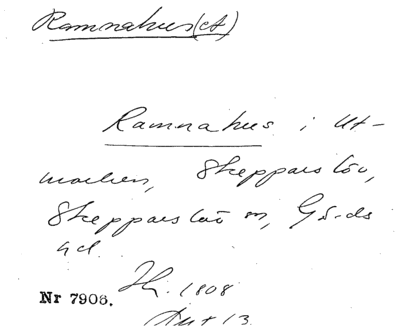 Ramnahus(et)
Ramnahus i Ut-
marken, Skepparslöv,
Skepparslöv sn, Gärds
hd.
Nr 7906. Hi. 1808
Akt 13